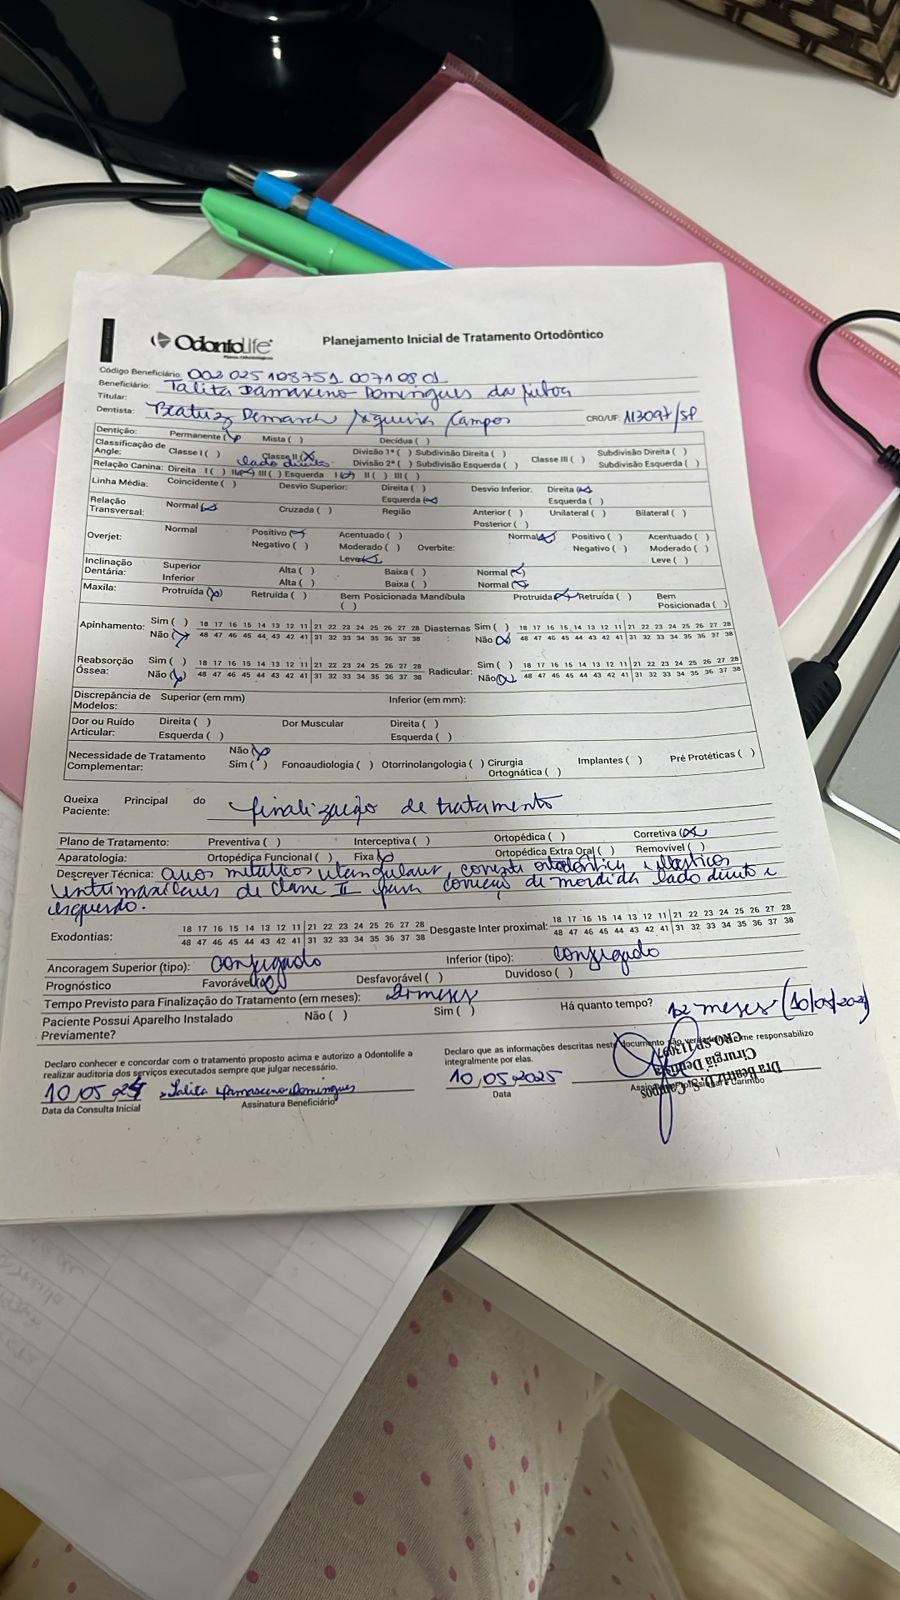 OdontoLife
Planos Odontológicos
Planejamento Inicial de Tratamento Ortodôntico
Código Beneficiário: 002 025 108751 0071080 1
Beneficiário: Talita Damasceno Domingues da
Titular:
Dentista: Beatriz Demarch Siqueira Campos CRO/UF: 113097/SP
Dentição: Permanente (x) Mista ( ) Decídua ( )
Classificação de Angle: Classe I ( ) Classe II (x) Divisão 1ª ( ) Subdivisão Direita ( ) Classe III ( ) Subdivisão Direita ( )
lado direito Divisão 2ª ( ) Subdivisão Esquerda ( ) Subdivisão Esquerda ( )
Relação Canina: Direita I ( ) II (x) III ( ) Esquerda I (x) II ( ) III ( )
Linha Média: Coincidente ( ) Desvio Superior: Direita ( ) Desvio Inferior: Direita (x)
Esquerda (x) Esquerda ( )
Relação Transversal: Normal (x) Cruzada ( ) Região Anterior ( ) Unilateral ( ) Bilateral ( )
Posterior ( )
Overjet: Normal Positivo (x) Acentuado ( ) Overbite: Normal (x) Positivo ( ) Acentuado ( )
Negativo ( ) Moderado ( ) Negativo ( ) Moderado ( )
Leve (x) Leve ( )
Inclinação Dentária: Superior Alta ( ) Baixa ( ) Normal (x)
Inferior Alta ( ) Baixa ( ) Normal (x)
Maxila: Protruída (x) Retruída ( ) Bem Posicionada ( ) Mandíbula Protruida (x) Retruída ( ) Bem Posicionada ( )
Apinhamento: Sim ( ) 18 17 16 15 14 13 12 11 21 22 23 24 25 26 27 28 Diastemas Sim ( ) 18 17 16 15 14 13 12 11 21 22 23 24 25 26 27 28
Não (x) 48 47 46 45 44 43 42 41 31 32 33 34 35 36 37 38 Não (x) 48 47 46 45 44 43 42 41 31 32 33 34 35 36 37 38
Reabsorção Óssea: Sim ( ) 18 17 16 15 14 13 12 11 21 22 23 24 25 26 27 28 Radicular: Sim ( ) 18 17 16 15 14 13 12 11 21 22 23 24 25 26 27 28
Não (x) 48 47 46 45 44 43 42 41 31 32 33 34 35 36 37 38 Não (x) 48 47 46 45 44 43 42 41 31 32 33 34 35 36 37 38
Discrepância de Modelos: Superior (em mm) Inferior (em mm):
Dor ou Ruído Articular: Direita ( ) Dor Muscular Direita ( )
Esquerda ( ) Esquerda ( )
Necessidade de Tratamento Complementar: Não (x)
Sim ( ) Fonoaudiologia ( ) Otorrinolangologia ( ) Cirurgia Ortognática ( ) Implantes ( ) Pré Protéticas ( )
Queixa Principal do Paciente: finalização de tratamento
Plano de Tratamento: Preventiva ( ) Interceptiva ( ) Ortopédica ( ) Corretiva (x)
Aparatologia: Ortopédica Funcional ( ) Fixa (x) Ortopédica Extra Oral ( ) Removível ( )
Descrever Técnica: arcos metálicos retangulares, corrente ortodôntica, elásticos
intermaxilares de classe II para correção de mordida lado direito e
esquerdo.
Exodontias: 18 17 16 15 14 13 12 11 21 22 23 24 25 26 27 28 Desgaste Inter proximal: 18 17 16 15 14 13 12 11 21 22 23 24 25 26 27 28
48 47 46 45 44 43 42 41 31 32 33 34 35 36 37 38 48 47 46 45 44 43 42 41 31 32 33 34 35 36 37 38
Ancoragem Superior (tipo): conjugado Inferior (tipo): conjugado
Prognóstico Favorável (x) Desfavorável ( ) Duvidoso ( )
Tempo Previsto para Finalização do Tratamento (em meses): meses
Paciente Possui Aparelho Instalado Previamente? Não ( ) Sim ( ) Há quanto tempo? 12 meses
Declaro conhecer e concordar com o tratamento proposto acima e autorizo a Odontolife a
realizar auditoria dos serviços executados sempre que julgar necessário.
Declaro que as informações descritas neste documento são verdadeiras e me responsabilizo
integralmente por elas.
10/05/ Talita Damasceno Domingues 10/05/2025
Data da Consulta Inicial Assinatura Beneficiário Data Assinatura Profissional e Carimbo
Dra Beatriz D. S. Campos
Cirurgiã Dentista
CRO SP 113097